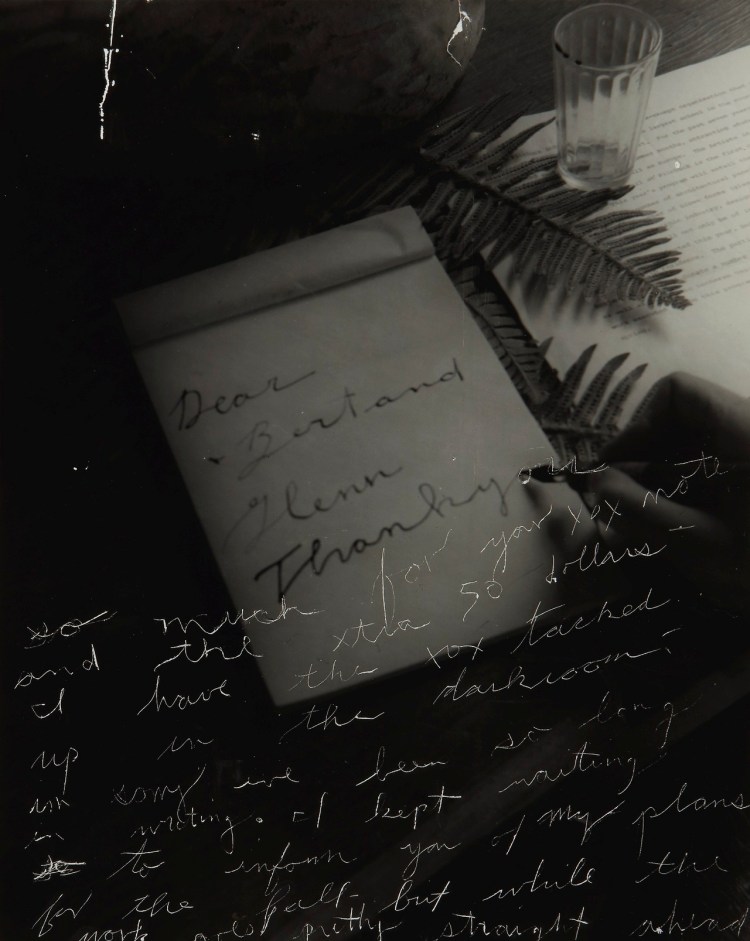 Dear
Bertand
Glenn
Thankyou
so much for your xox note
and the xtra 50 dollars -
I have the xox tacked
up in the darkroom.
im sorry ive been so long
in writing. I kept writing
to inform you of my plans
for the fall - but while the
work goes pretty straight ahead